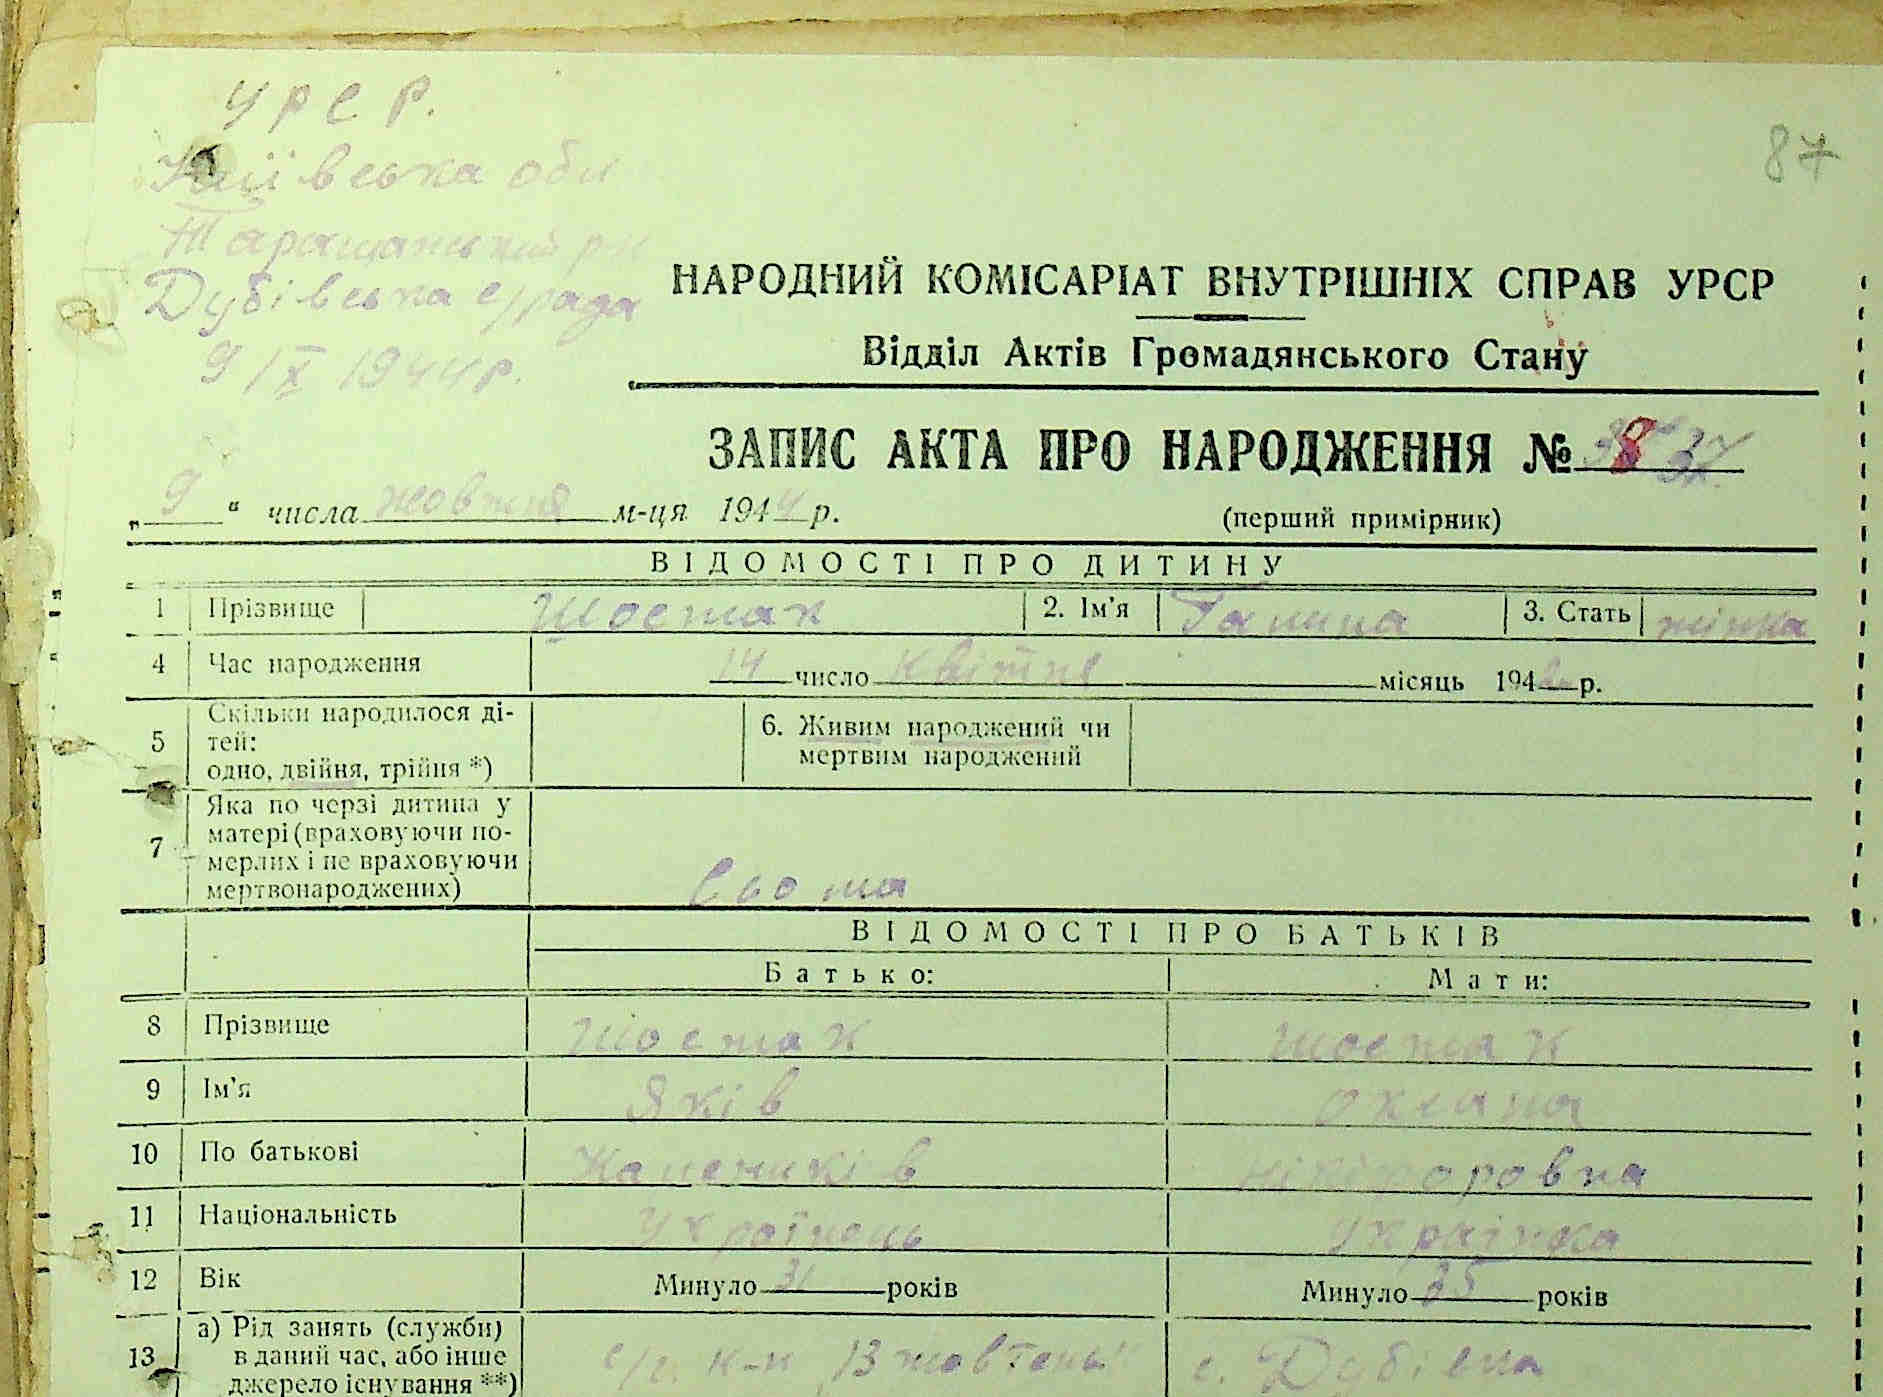 УРСР.
87
Київська обл
Таращанський р-н
Дубівська с/рада
9/X 1944 р.
НАРОДНИЙ КОМІСАРІАТ ВНУТРІШНІХ СПРАВ УРСР
Відділ Актів Громадянського Стану
ЗАПИС АКТА ПРО НАРОДЖЕННЯ № 37
„ 9 " числа жовтня м-ця 1944 р.
(перший примірник)
ВІДОМОСТІ ПРО ДИТИНУ
1 Прізвище Шостак 2. Ім'я Галина 3. Стать жінка
4 Час народження 14 число квітня місяць 1942 р.
5 Скільки народилося ді-
тей:
одно, двійня, трійня *)
6. Живим народжений чи
мертвим народжений
7 Яка по черзі дитина у
матері (враховуючи по-
мерлих і не враховуючи
мертвонароджених)
Сьома
ВІДОМОСТІ ПРО БАТЬКІВ
Батько: Мати:
8 Прізвище Шостак Шостак
9 Ім'я Яків Оксана
10 По батькові Нікіфоровна
11 Національність Українець Українка
12 Вік Минуло 31 років Минуло 35 років
13 а) Рід занять (служби)
в даний час, або інше
джерело існування **)
с/г. к-п 13 жовтень" с.